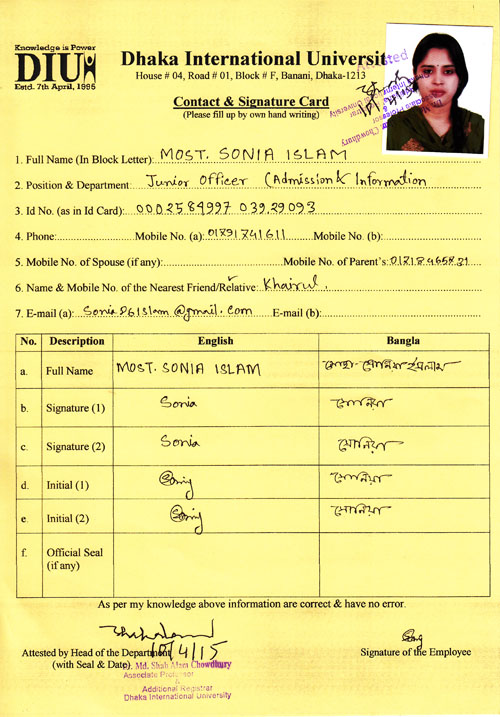 Knowledge is Power
DIU
Estd. 7th April, 1995
Dhaka International University
House # 04, Road # 01, Block # F, Banani, Dhaka-1213
Attested
Contact & Signature Card
(Please fill up by own hand writing)
1. Full Name (In Block Letter): MOST. SONIA ISLAM
2. Position & Department: Junior Officer (Admission & Information
3. Id No. (as in Id Card): 0002584997 03929093
4. Phone: Mobile No. (a): 01891841611 Mobile No. (b):
5. Mobile No. of Spouse (if any): Mobile No. of Parent's:
6. Name & Mobile No. of the Nearest Friend/Relative: Khairul.
7. E-mail (a): Sonia86islam@gmail.com E-mail (b):
No. Description English Bangla
a. Full Name MOST. SONIA ISLAM মোছাঃ সোনিয়া ইসলাম
b. Signature (1) Sonia সোনিয়া
c. Signature (2) Sonia সোনিয়া
d. Initial (1) সোনিয়া
e. Initial (2) সোনিয়া
f. Official Seal
(if any)
As per my knowledge above information are correct & have no error.
10/4/15
Attested by Head of the Department
(with Seal & Date)
Signature of the Employee
Md. Shah Alam Chowdhury
Associate Professor
&
Additional Registrar
Dhaka International University